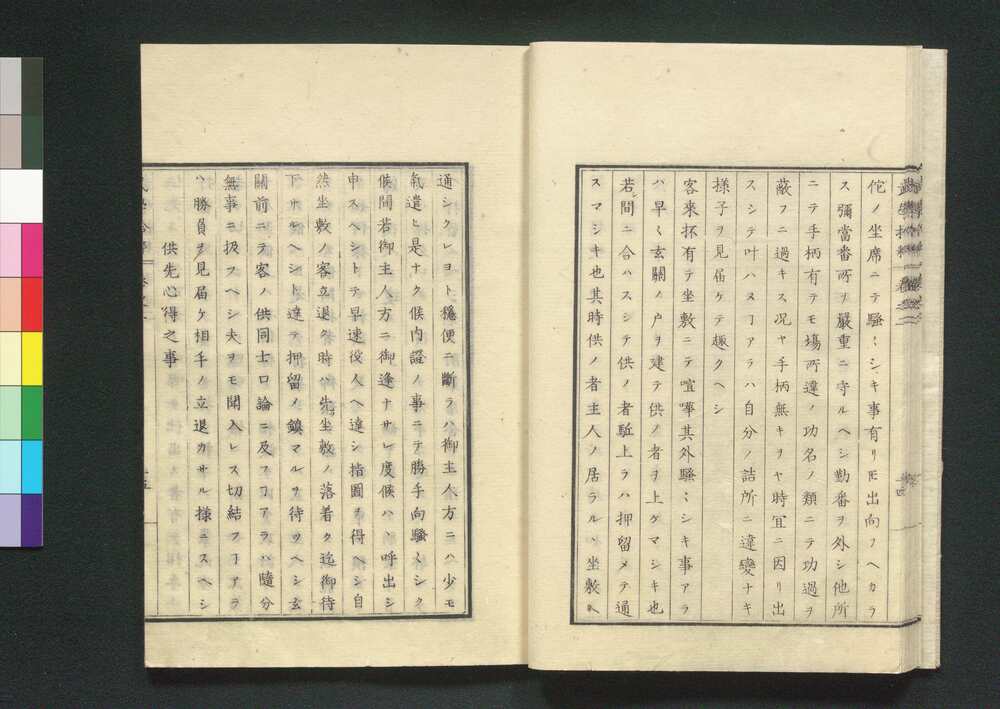 佗ノ坐席ニテ騷〻シキ事有リ𪜈出向フヘカラ
ス彌當番所ヲ嚴重ニ守ルヘシ勤番ヲ外シ他所
ニテ手柄有テモ塲所違ノ功名ノ類ニテ功過ヲ
蔽フニ過キス况ヤ手柄無キヲヤ時宜ニ因リ出
スシテ叶ハヌ丁アラハ自分ノ詰所ニ違變ナキ
樣子ヲ見届ケテ趣クヘシ
客来抔有テ坐敷ニテ喧嘩其外騷〻シキ事アラ
ハ早〻玄關ノ戸ヲ建テ供ノ者ヲ上ケマシキ也
若シ間ニ合ハスシテ供ノ者駈上ラハ押留メテ通
スマシキ也其時供ノ者主人ノ居ラルヽ坐敷ヘ
通シクレヨト穩便ニ斷ラハ御主人方ニハ少モ
氣遣ヒ是ナク候内證ノ事ニテ勝手向騷〻シク
候間若御主人方ニ御逢ナサレ度候ハヽ呼出シ
申スヘシトテ早速役人ヘ達シ指圖ヲ得ヘシ自
然坐敷ノ客立退ク時ハ先坐敷ノ落着ク迄御待
下サルヘシト達テ押留メ鎮マルヲ待ツヘシ玄
關前ニテ客ノ供同士口論ニ及フ丁アラハ隨分
無事ニ扱フヘシ夫ヲモ聞入レス切結フ丁アラ
ハ勝負ヲ見届ケ相手ノ立退カサル樣ニスヘシ
供先心得之事